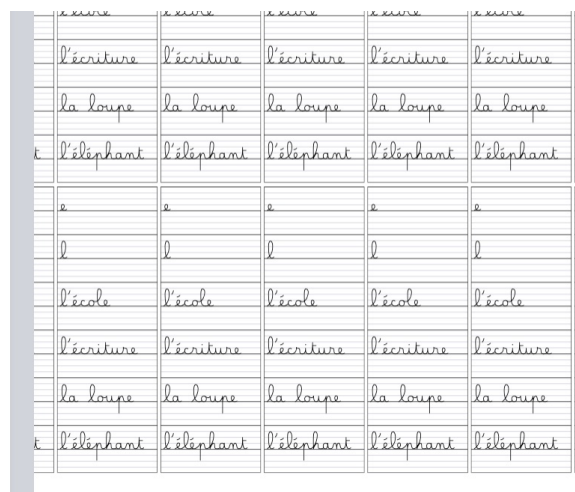 l'école l'école l'école l'école l'école
l'écriture l'écriture l'écriture l'écriture l'écriture
la loupe la loupe la loupe la loupe la loupe
t l'éléphant l'éléphant l'éléphant l'éléphant l'éléphant
e e e e e
l l l l l
l'école l'école l'école l'école l'école
l'écriture l'écriture l'écriture l'écriture l'écriture
la loupe la loupe la loupe la loupe la loupe
t l'éléphant l'éléphant l'éléphant l'éléphant l'éléphant